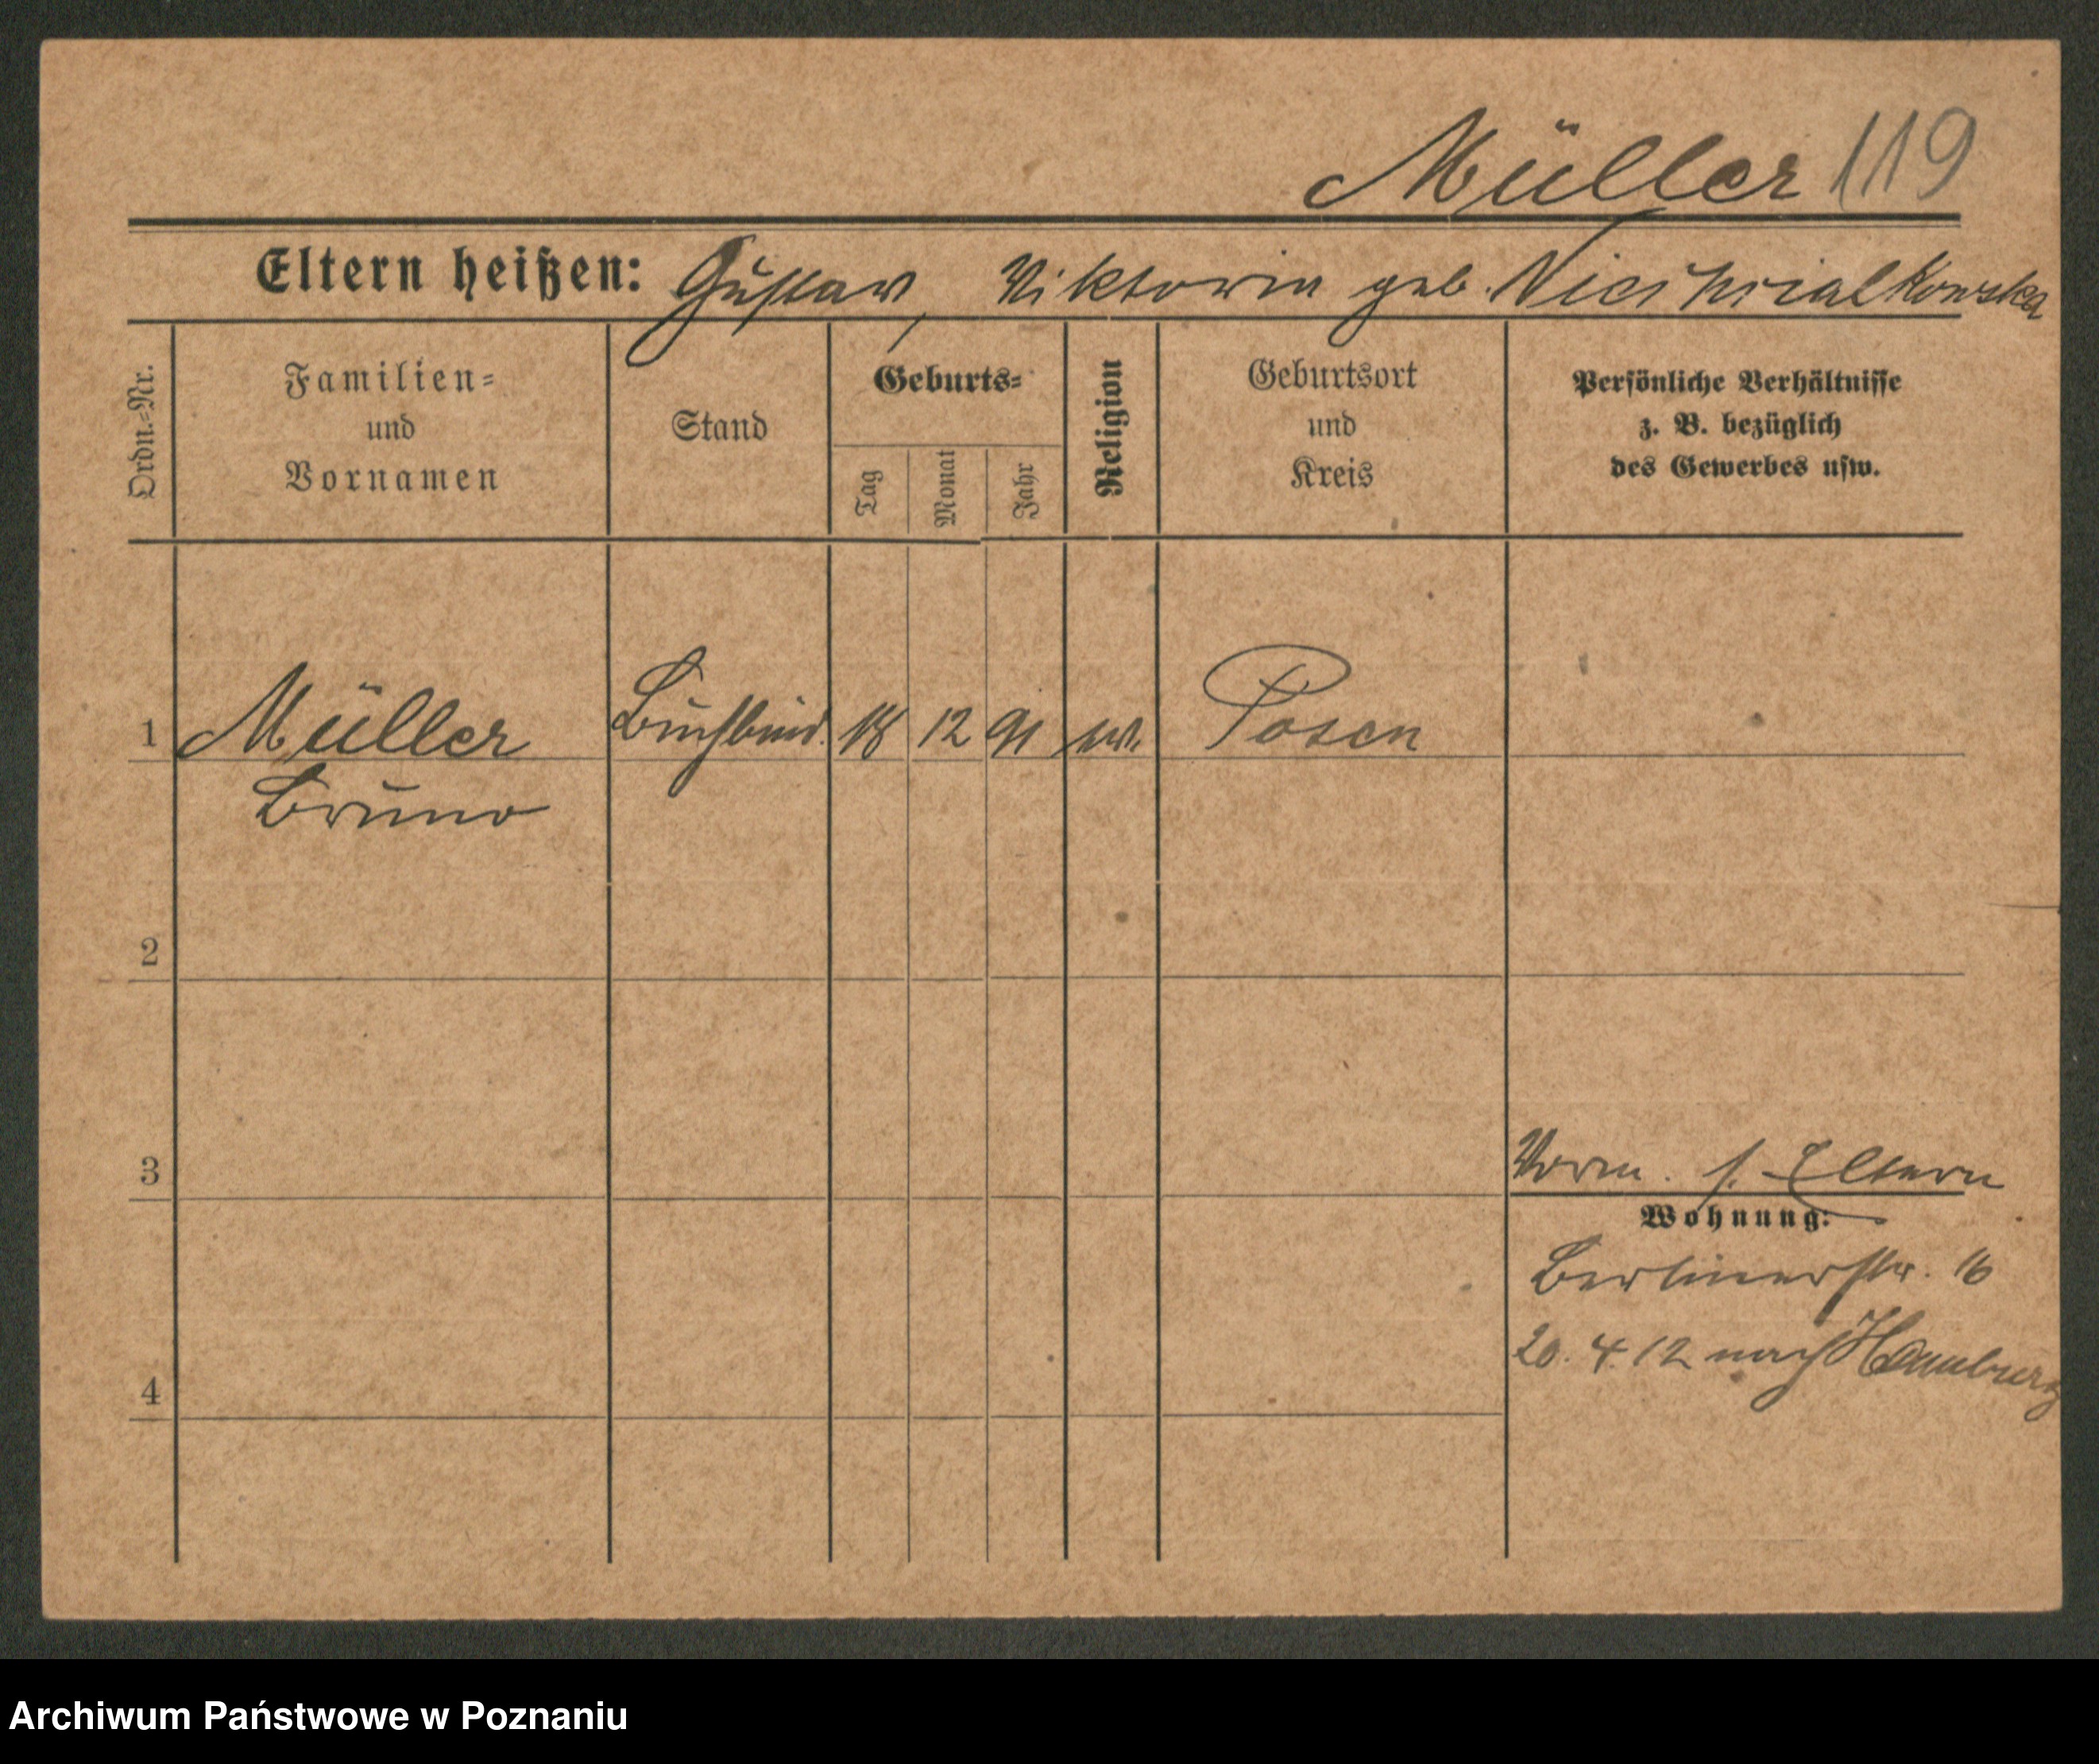 Müller 119
Eltern heißen: Gustav, Viktoria geb.
Ordn.=Nr.
Familien=
und
Vornamen
Stand
Geburts=
Tag
Monat
Jahr
Religion
Geburtsort
und
Kreis
Persönliche Verhältnisse
z. B. bezüglich
des Gewerbes usw.
1 Müller Buchbind. 18 12 91 Posen
Bruno
2
3
s. Eltern
Wohnung:
Berlinerstr. 16
4
20. 4. 12 nach Hamburg
Archiwum Państwowe w Poznaniu